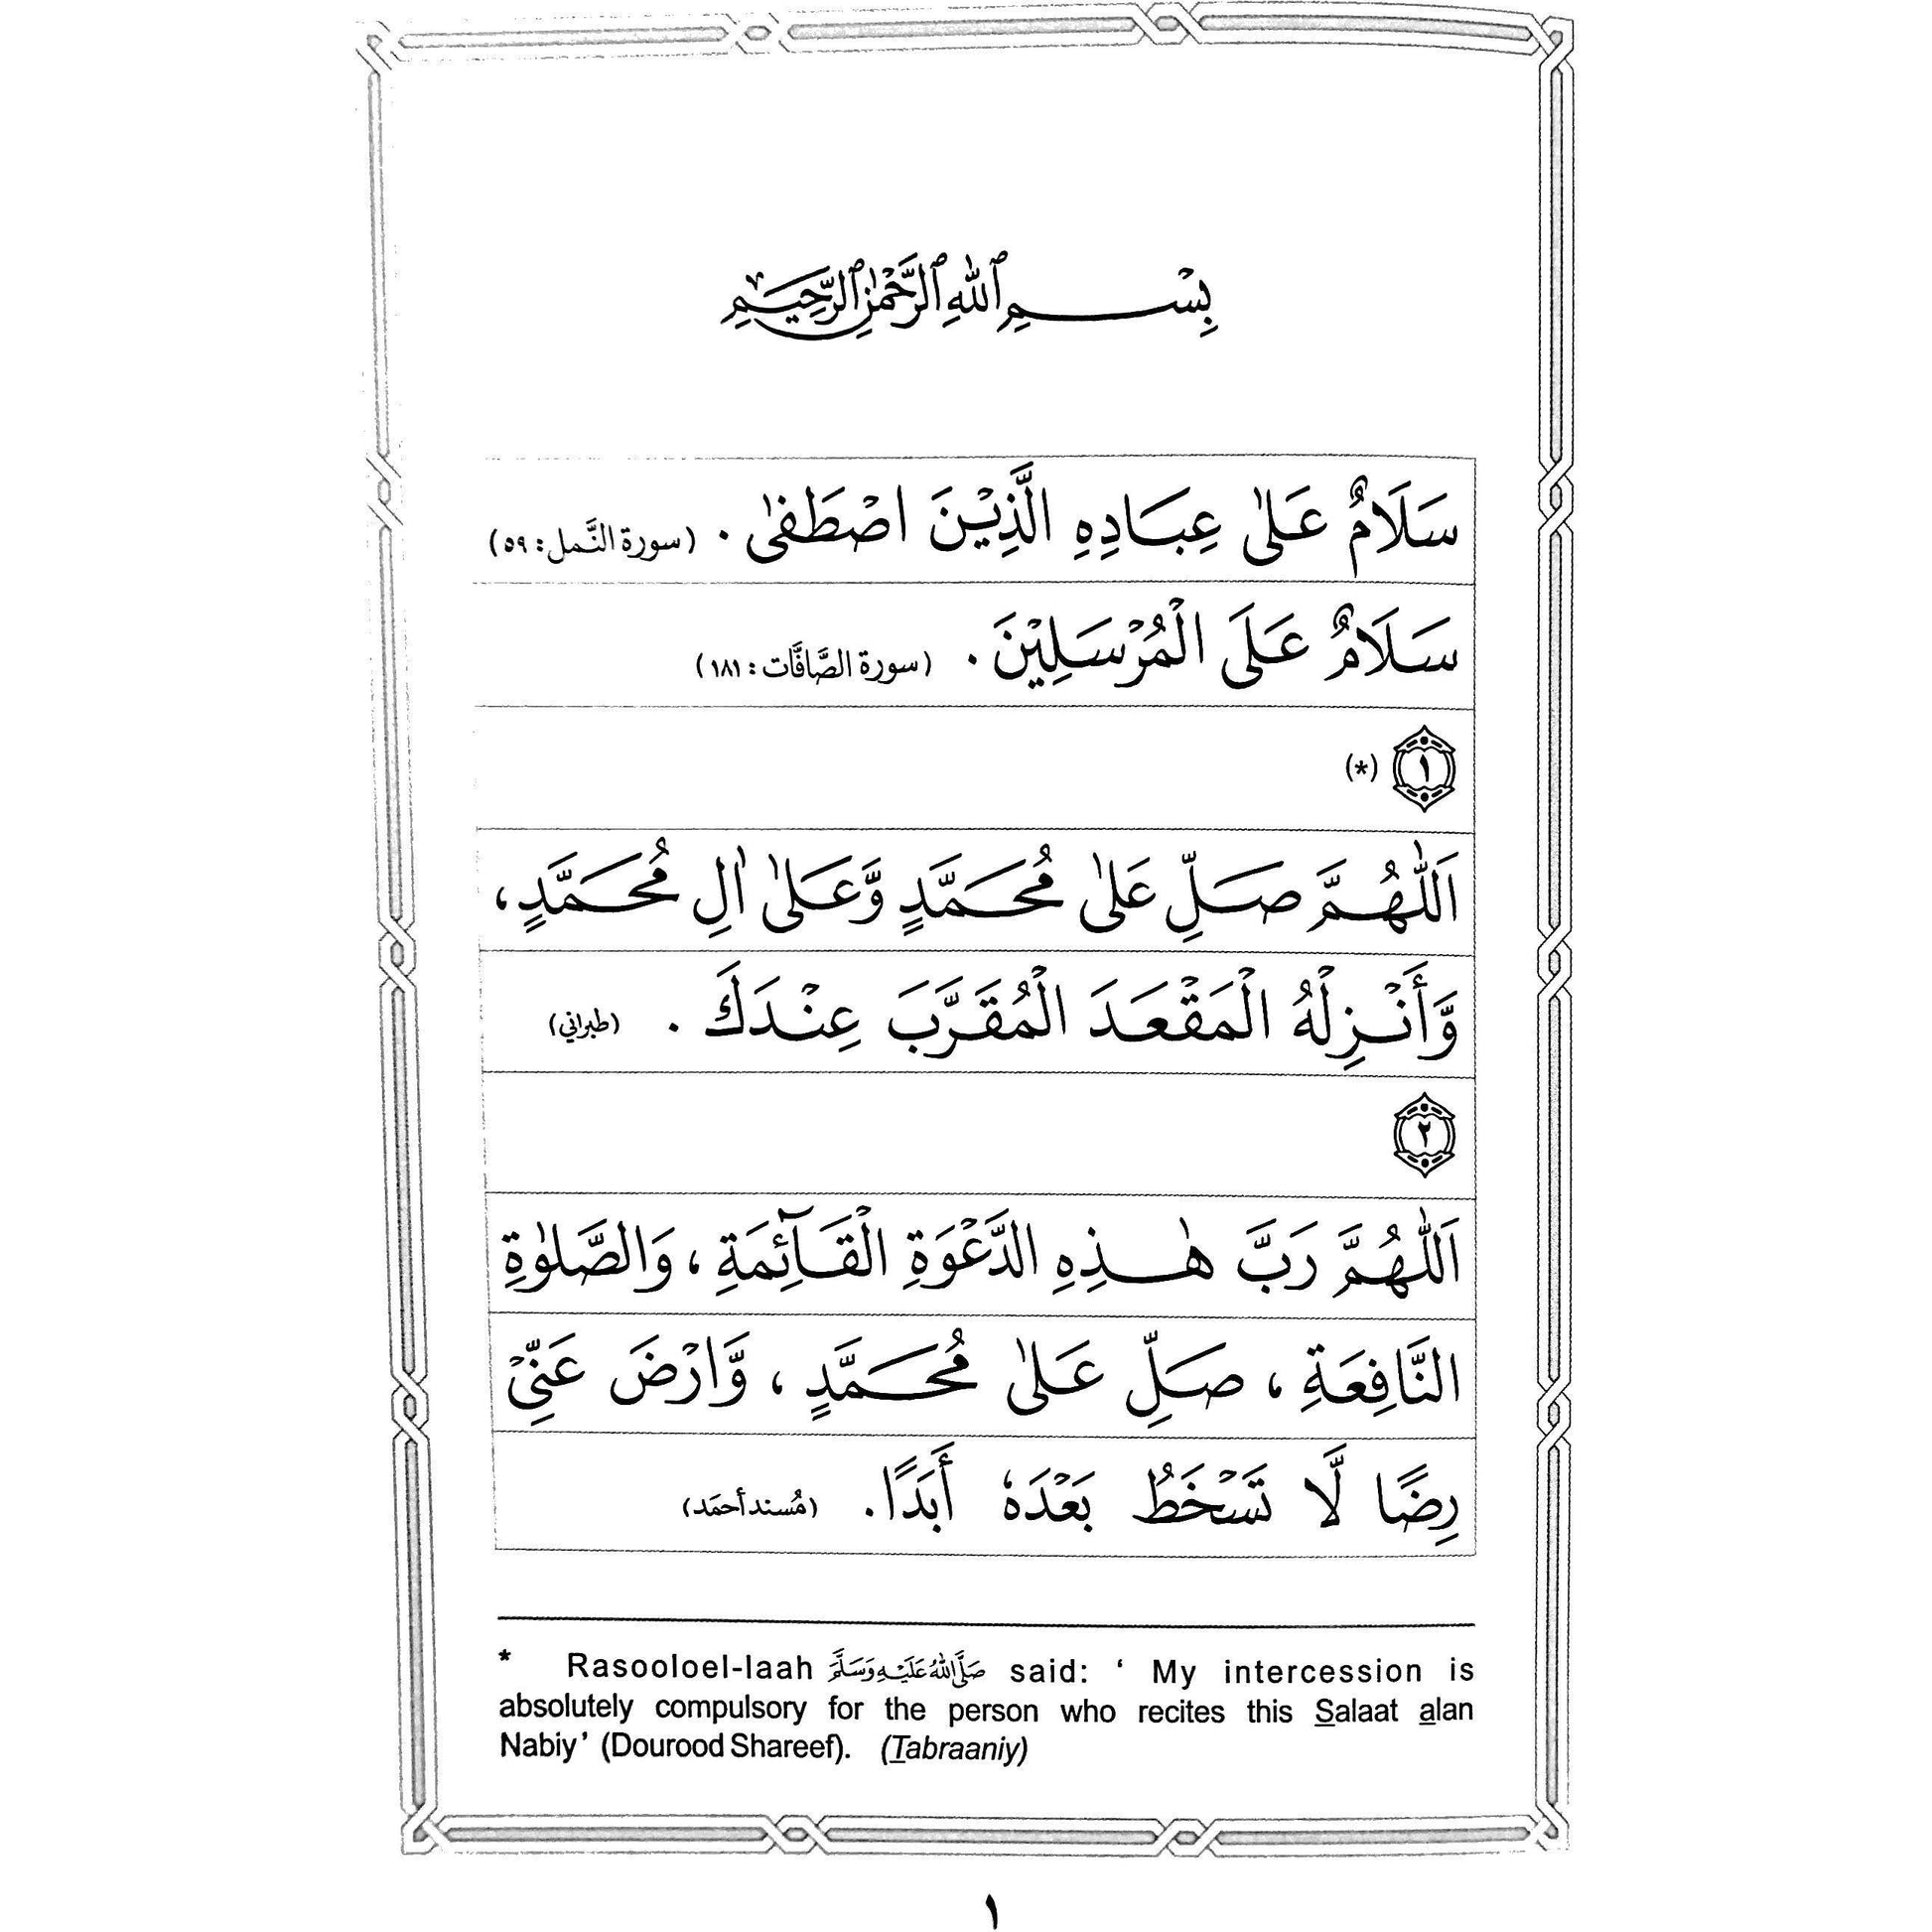 بِسْمِ ٱللهِ ٱلرَّحْمٰنِ ٱلرَّحِيْمِ
سَلَامٌ عَلٰى عِبَادِهِ الَّذِيْنَ اصْطَفٰى . (سورة النَّمل: ٥٩)
سَلَامٌ عَلَى الْمُرْسَلِيْنَ . (سورة الصَّافَّات: ١٨١)
١ (*)
اَللّٰهُمَّ صَلِّ عَلٰى مُحَمَّدٍ وَّعَلٰى اٰلِ مُحَمَّدٍ،
وَّأَنْزِلْهُ الْمَقْعَدَ الْمُقَرَّبَ عِنْدَكَ . (طبراني)
٢
اَللّٰهُمَّ رَبَّ هٰذِهِ الدَّعْوَةِ الْقَآئِمَةِ، وَالصَّلٰوةِ
النَّافِعَةِ، صَلِّ عَلٰى مُحَمَّدٍ، وَّارْضَ عَنِّيْ
رِضًا لَّا تَسْخَطُ بَعْدَهٗ أَبَدًا. (مُسند أحمَد)
* Rasooloel-laah صَلَّى اللهُ عَلَيْهِ وَسَلَّمَ said: ‘ My intercession is
absolutely compulsory for the person who recites this Salaat alan
Nabiy’ (Dourood Shareef). (Tabraaniy)
١